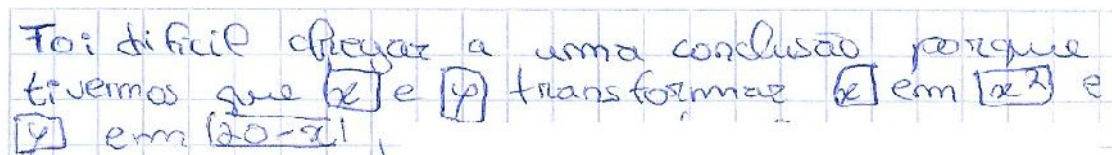 Foi dificil chegar a uma conclusão porque
tivemos que x e y transformar x em x² e
y em 20-x.